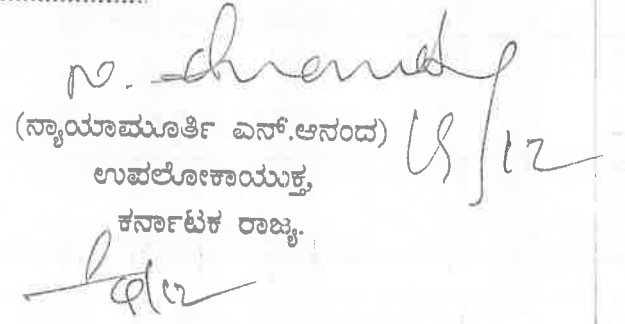 N. Ananda
(ನ್ಯಾಯಾಮೂರ್ತಿ ಎನ್.ಆನಂದ)
ಉಪಲೋಕಾಯುಕ್ತ,
ಕರ್ನಾಟಕ ರಾಜ್ಯ.